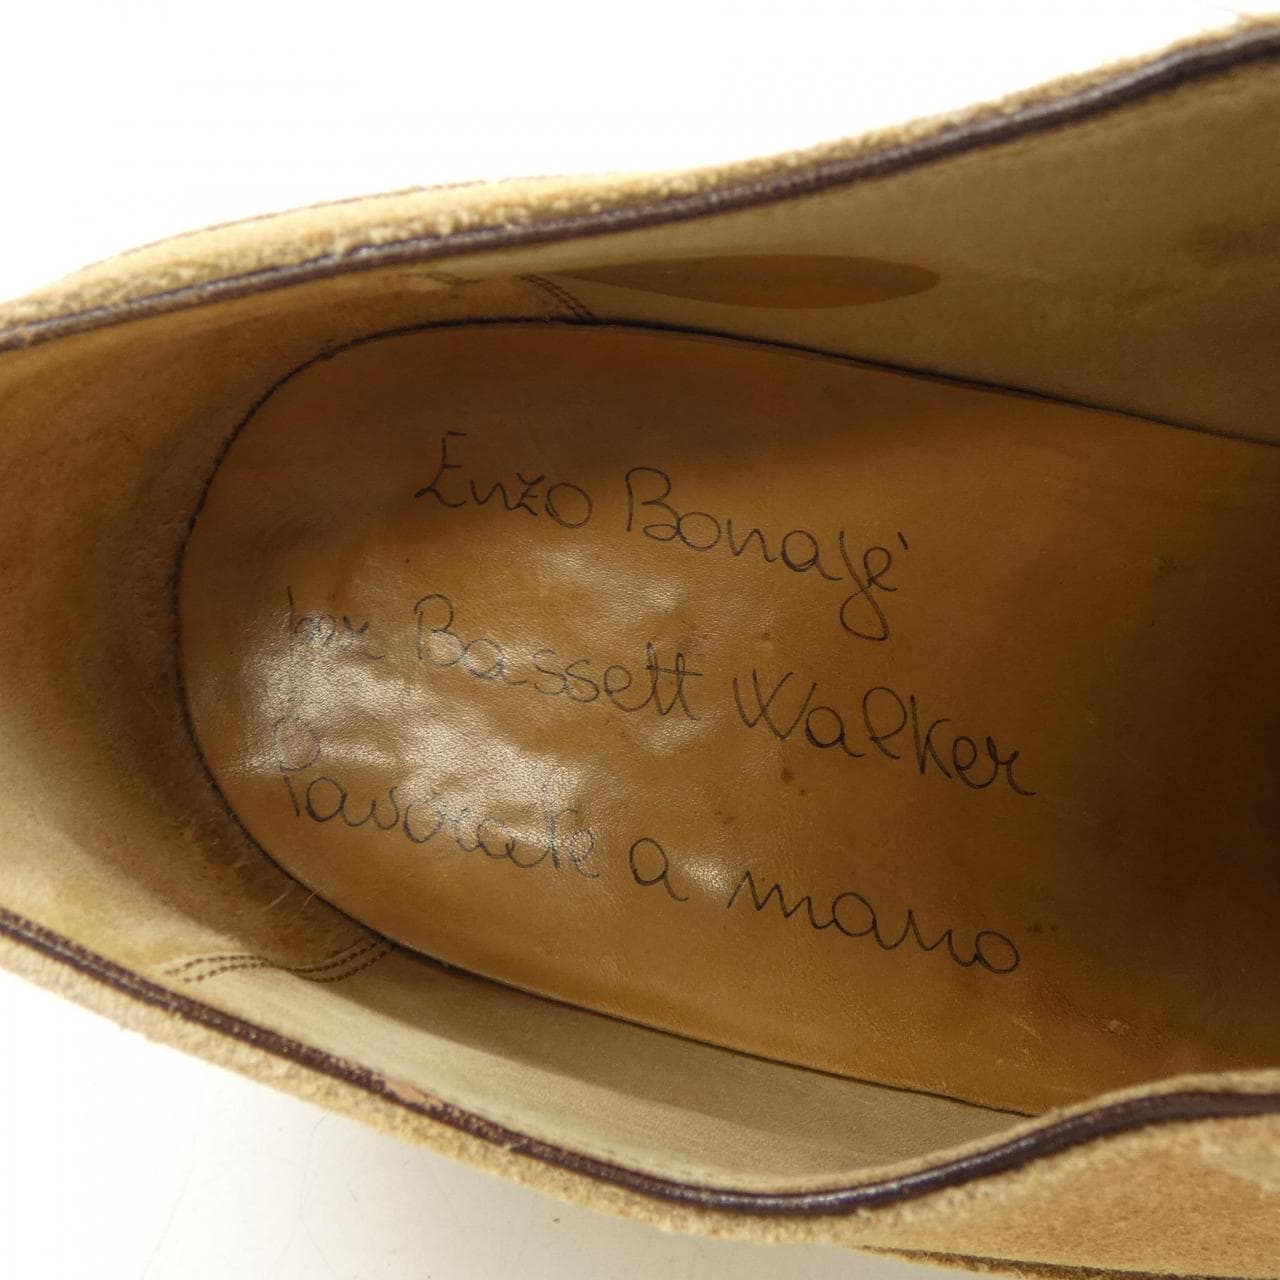 Enzo Bonafè
for Bassett Walker
Lavorate a mano